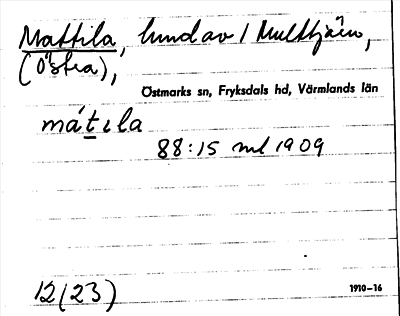 Mattila, hemd av 1 Multtjärn,
(Östra),
Östmarks sn, Fryksdals hd, Värmlands län
mát̲ıla
88:15 ml 1909
12(23)
1910-16